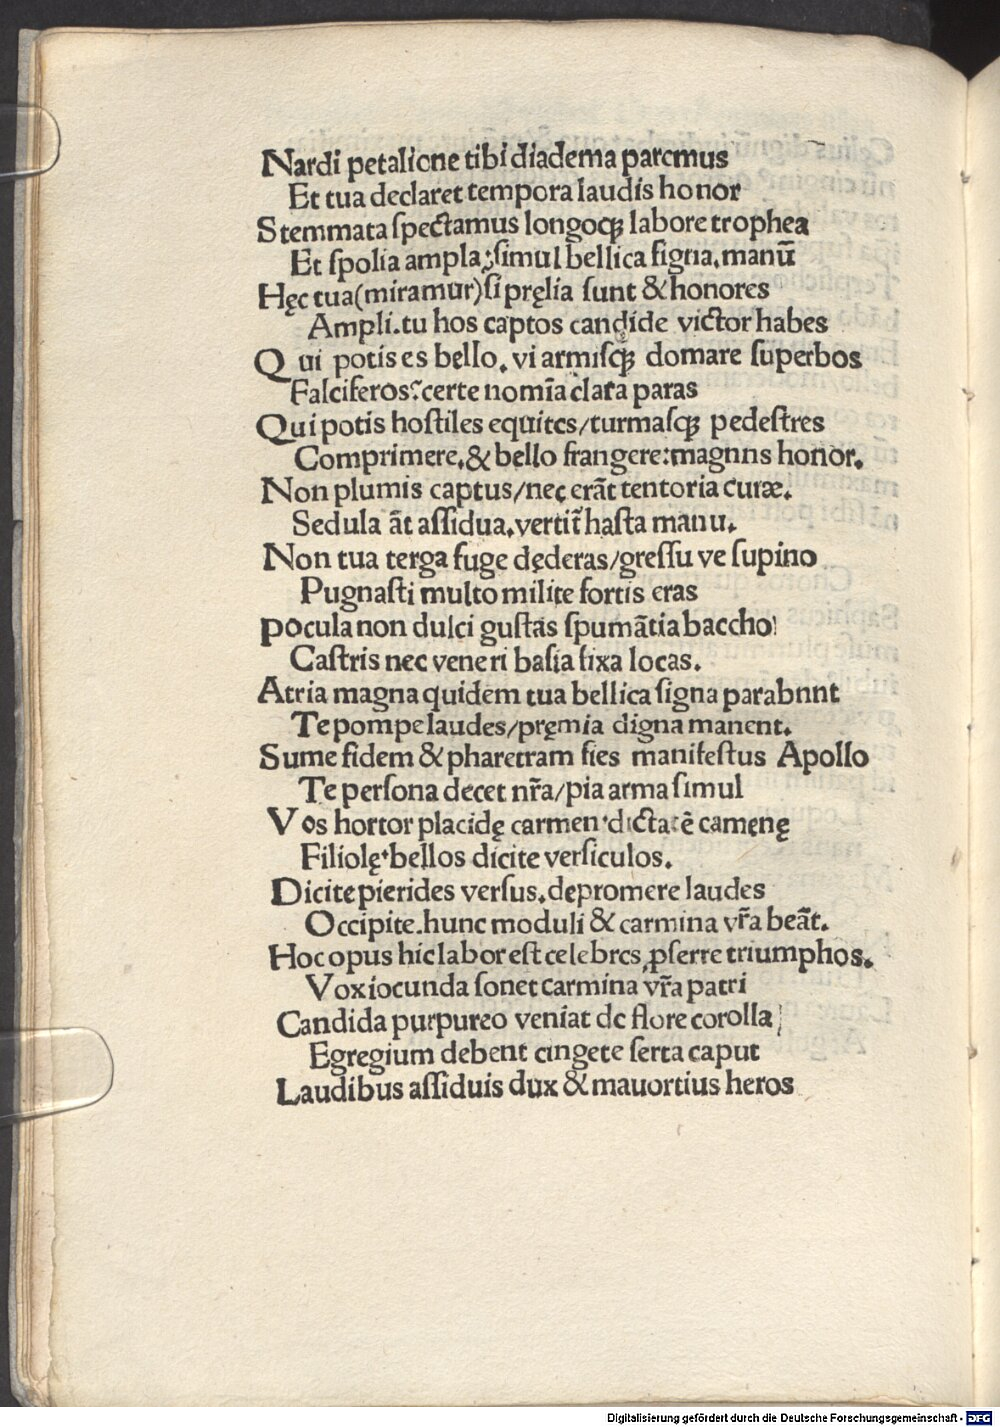 Nardi petalione tibi diadema paremus
Et tua declaret tempora laudis honor
Stemmata ſpectamus longoqꝫ labore trophea
Et ſpolia ampla; ſimul bellica ſigna, manū
Hęc tua (miramur) ſi pręlia ſunt & honores
Ampli. tu hos captos candide victor habes
Qui potis es bello, vi armiſqꝫ domare ſuperbos
Falciferos? certe nomīa clara paras
Qui potis hoſtiles equites/turmaſqꝫ pedeſtres
Comprimere, & bello frangere: magnns honor.
Non plumis captus/nec erāt tentoria curæ.
Sedula āt aſſidua, vertit̄ haſta manu.
Non tua terga fuge dęderas/greſſu ve ſupino
Pugnaſti multo milite fortis eras
pocula non dulci guſtas ſpumātia baccho
Caſtris nec veneri baſia fixa locas.
Atria magna quidem tua bellica ſigna parabnnt
Te pompe laudes/pręmia digna manent.
Sume fidem & pharetram fies manifeſtus Apollo
Te perſona decet nr̄a/pia arma ſimul
Vos hortor placidę carmen dictatē camenę
Filiolę bellos dicite verſiculos.
Dicite pierides verſus, depromere laudes
Occipite. hunc moduli & carmina vr̄a beāt.
Hoc opus hic labor eſt celebres, ꝓferre triumphos.
Vox iocunda ſonet carmina vr̄a patri
Candida purpureo veniat de flore corolla
Egregium debent cingete ſerta caput
Laudibus aſſiduis dux & mauortius heros
Digitalisierung gefördert durch die Deutsche Forschungsgemeinschaft - DFG